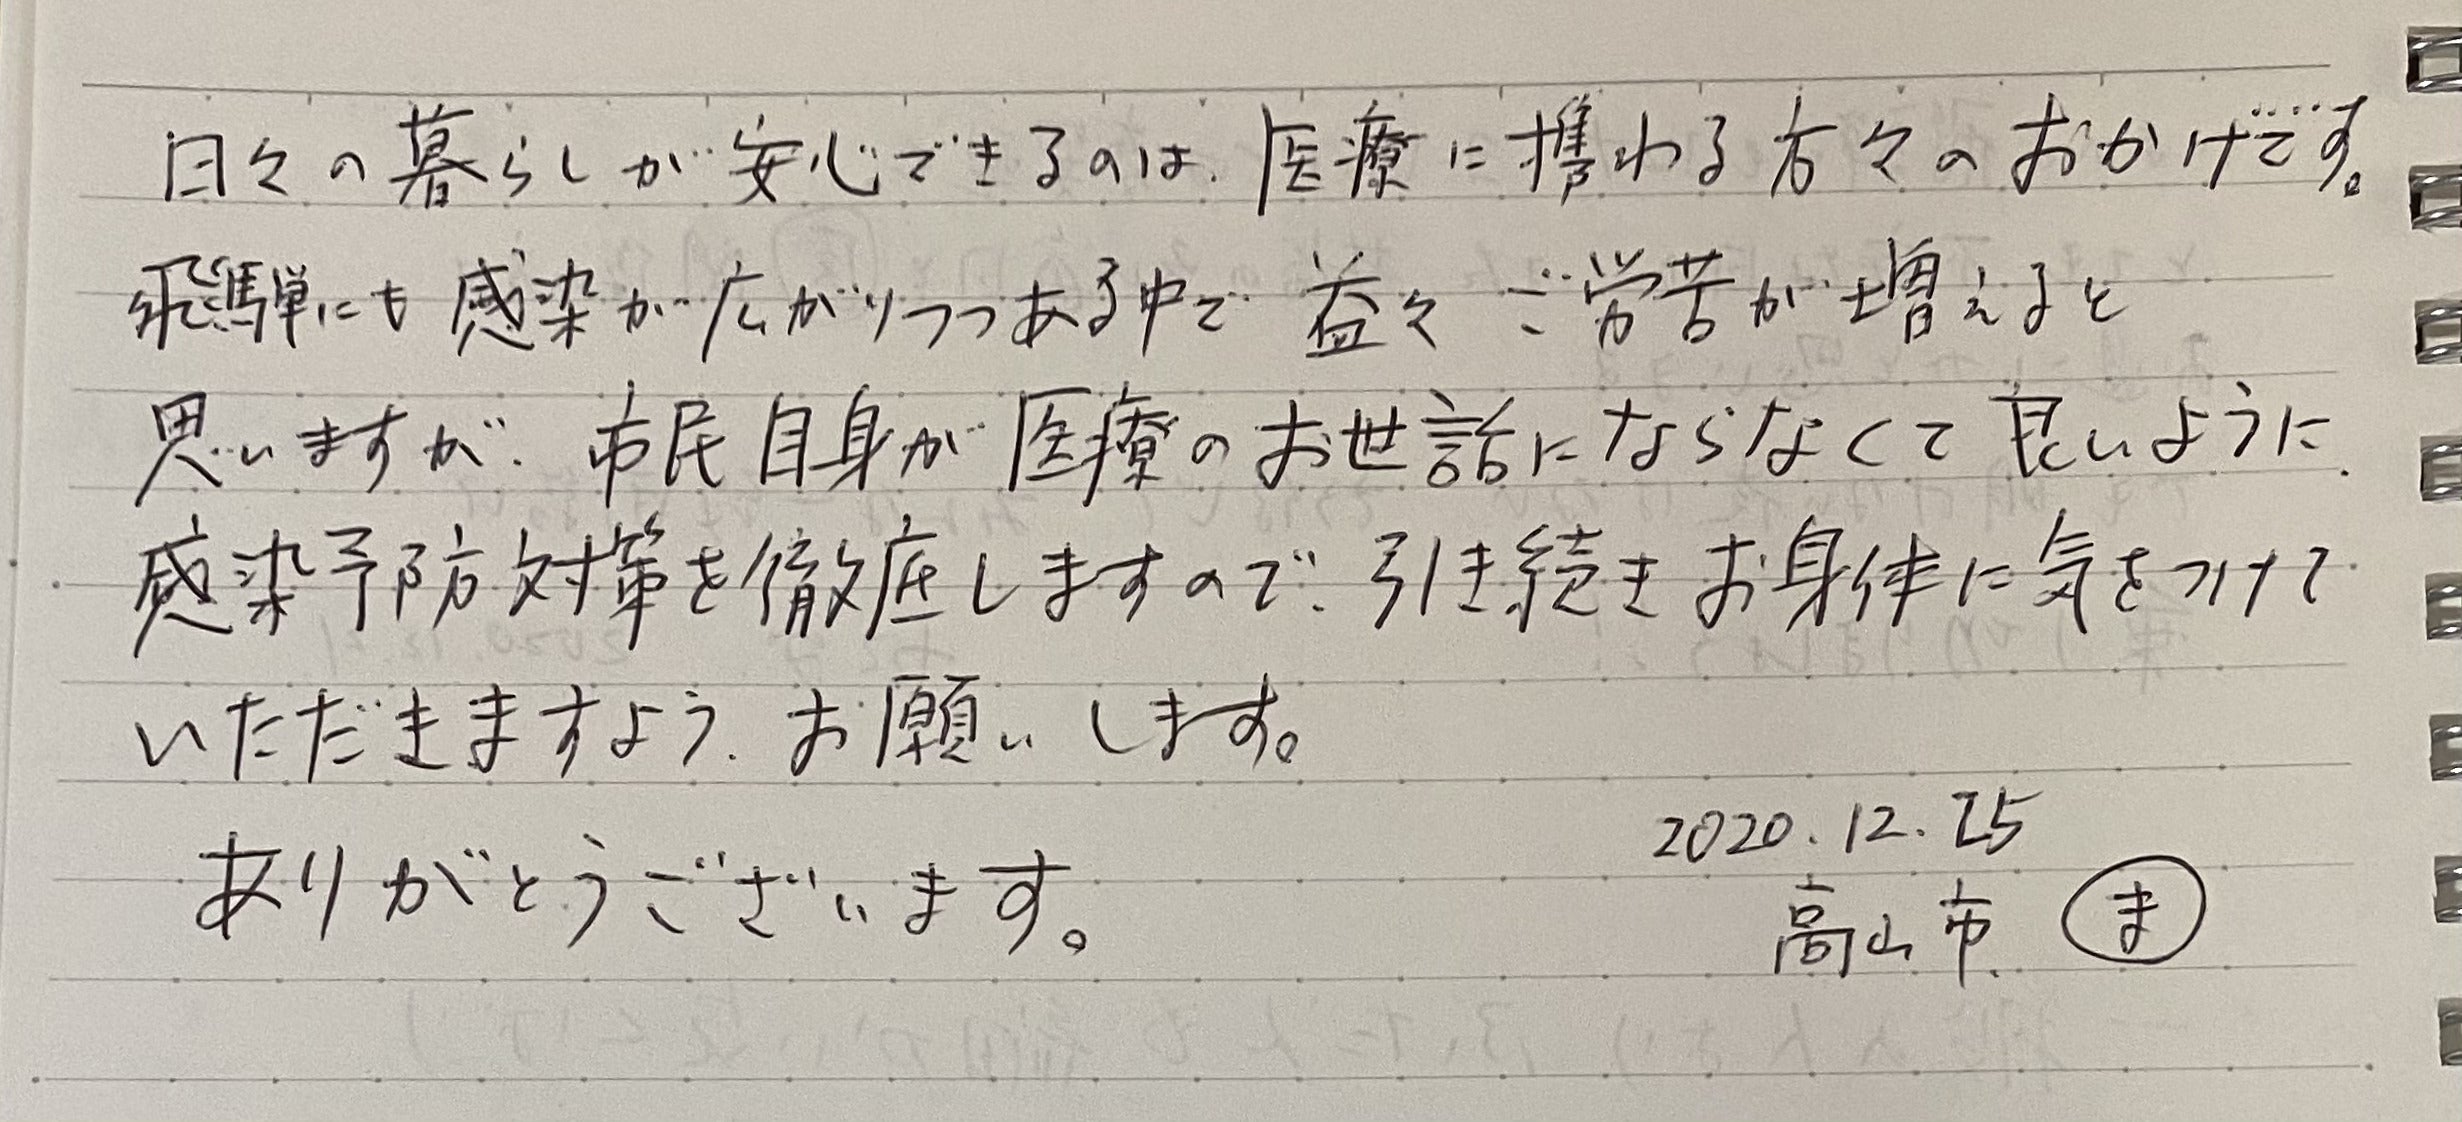 日々の暮らしが安心できるのは、医療に携わる方々のおかげです。
飛騨にも感染が広がりつつある中で益々ご労苦が増えると
思いますが、市民自身が医療のお世話にならなくて良いように、
感染予防対策を徹底しますので、引き続きお身体に気をつけて
いただきますよう、お願いします。
ありがとうございます。
2020.12.25
高山市 ま